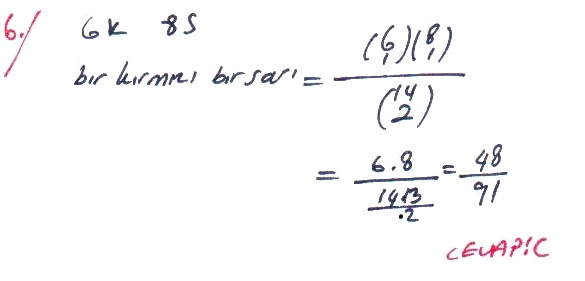 6./ 6K 8S
bir kırmızı bir sarı = (6 1)(8 1) / (14 2)
= 6.8 / (14.13 / .2) = 48 / 91
CEVAP:C